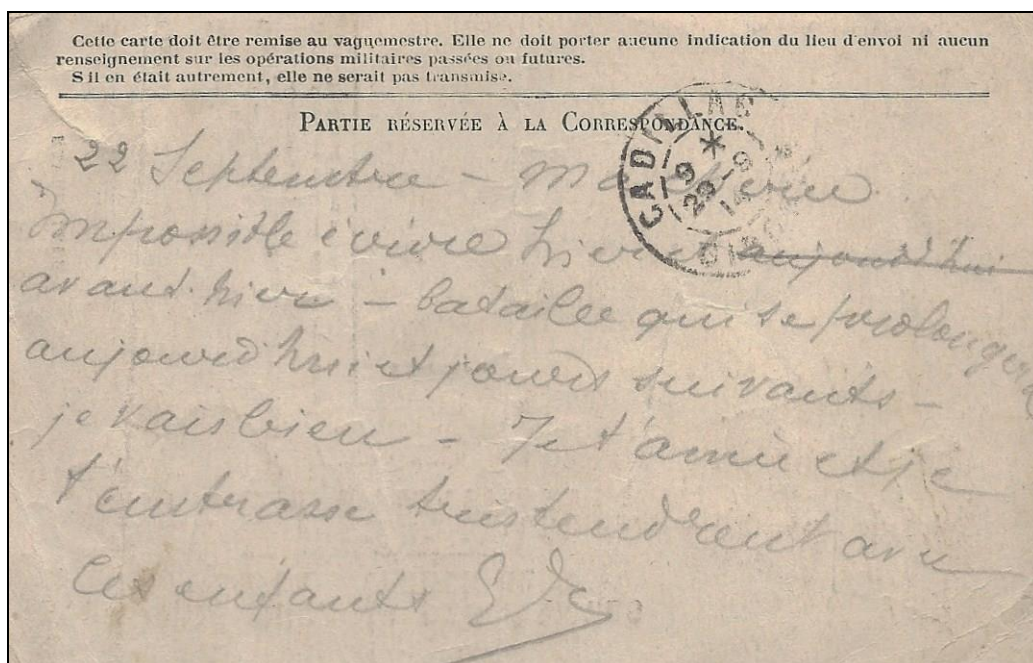 Cette carte doit être remise au vaguemestre. Elle ne doit porter aucune indication du lieu d'envoi ni aucun
renseignement sur les opérations militaires passées ou futures.
S'il en était autrement, elle ne serait pas transmise.
PARTIE RÉSERVÉE À LA CORRESPONDANCE.
CADILLAC
9
29-9
14
22 Septembre - Ma chérie
Impossible écrire hier et aujourd'hui
avant-hier - bataille qui se prolongera
aujourd'hui et jours suivants -
je vais bien - Je t'aime et je
t'embrasse tendrement avec
les enfants